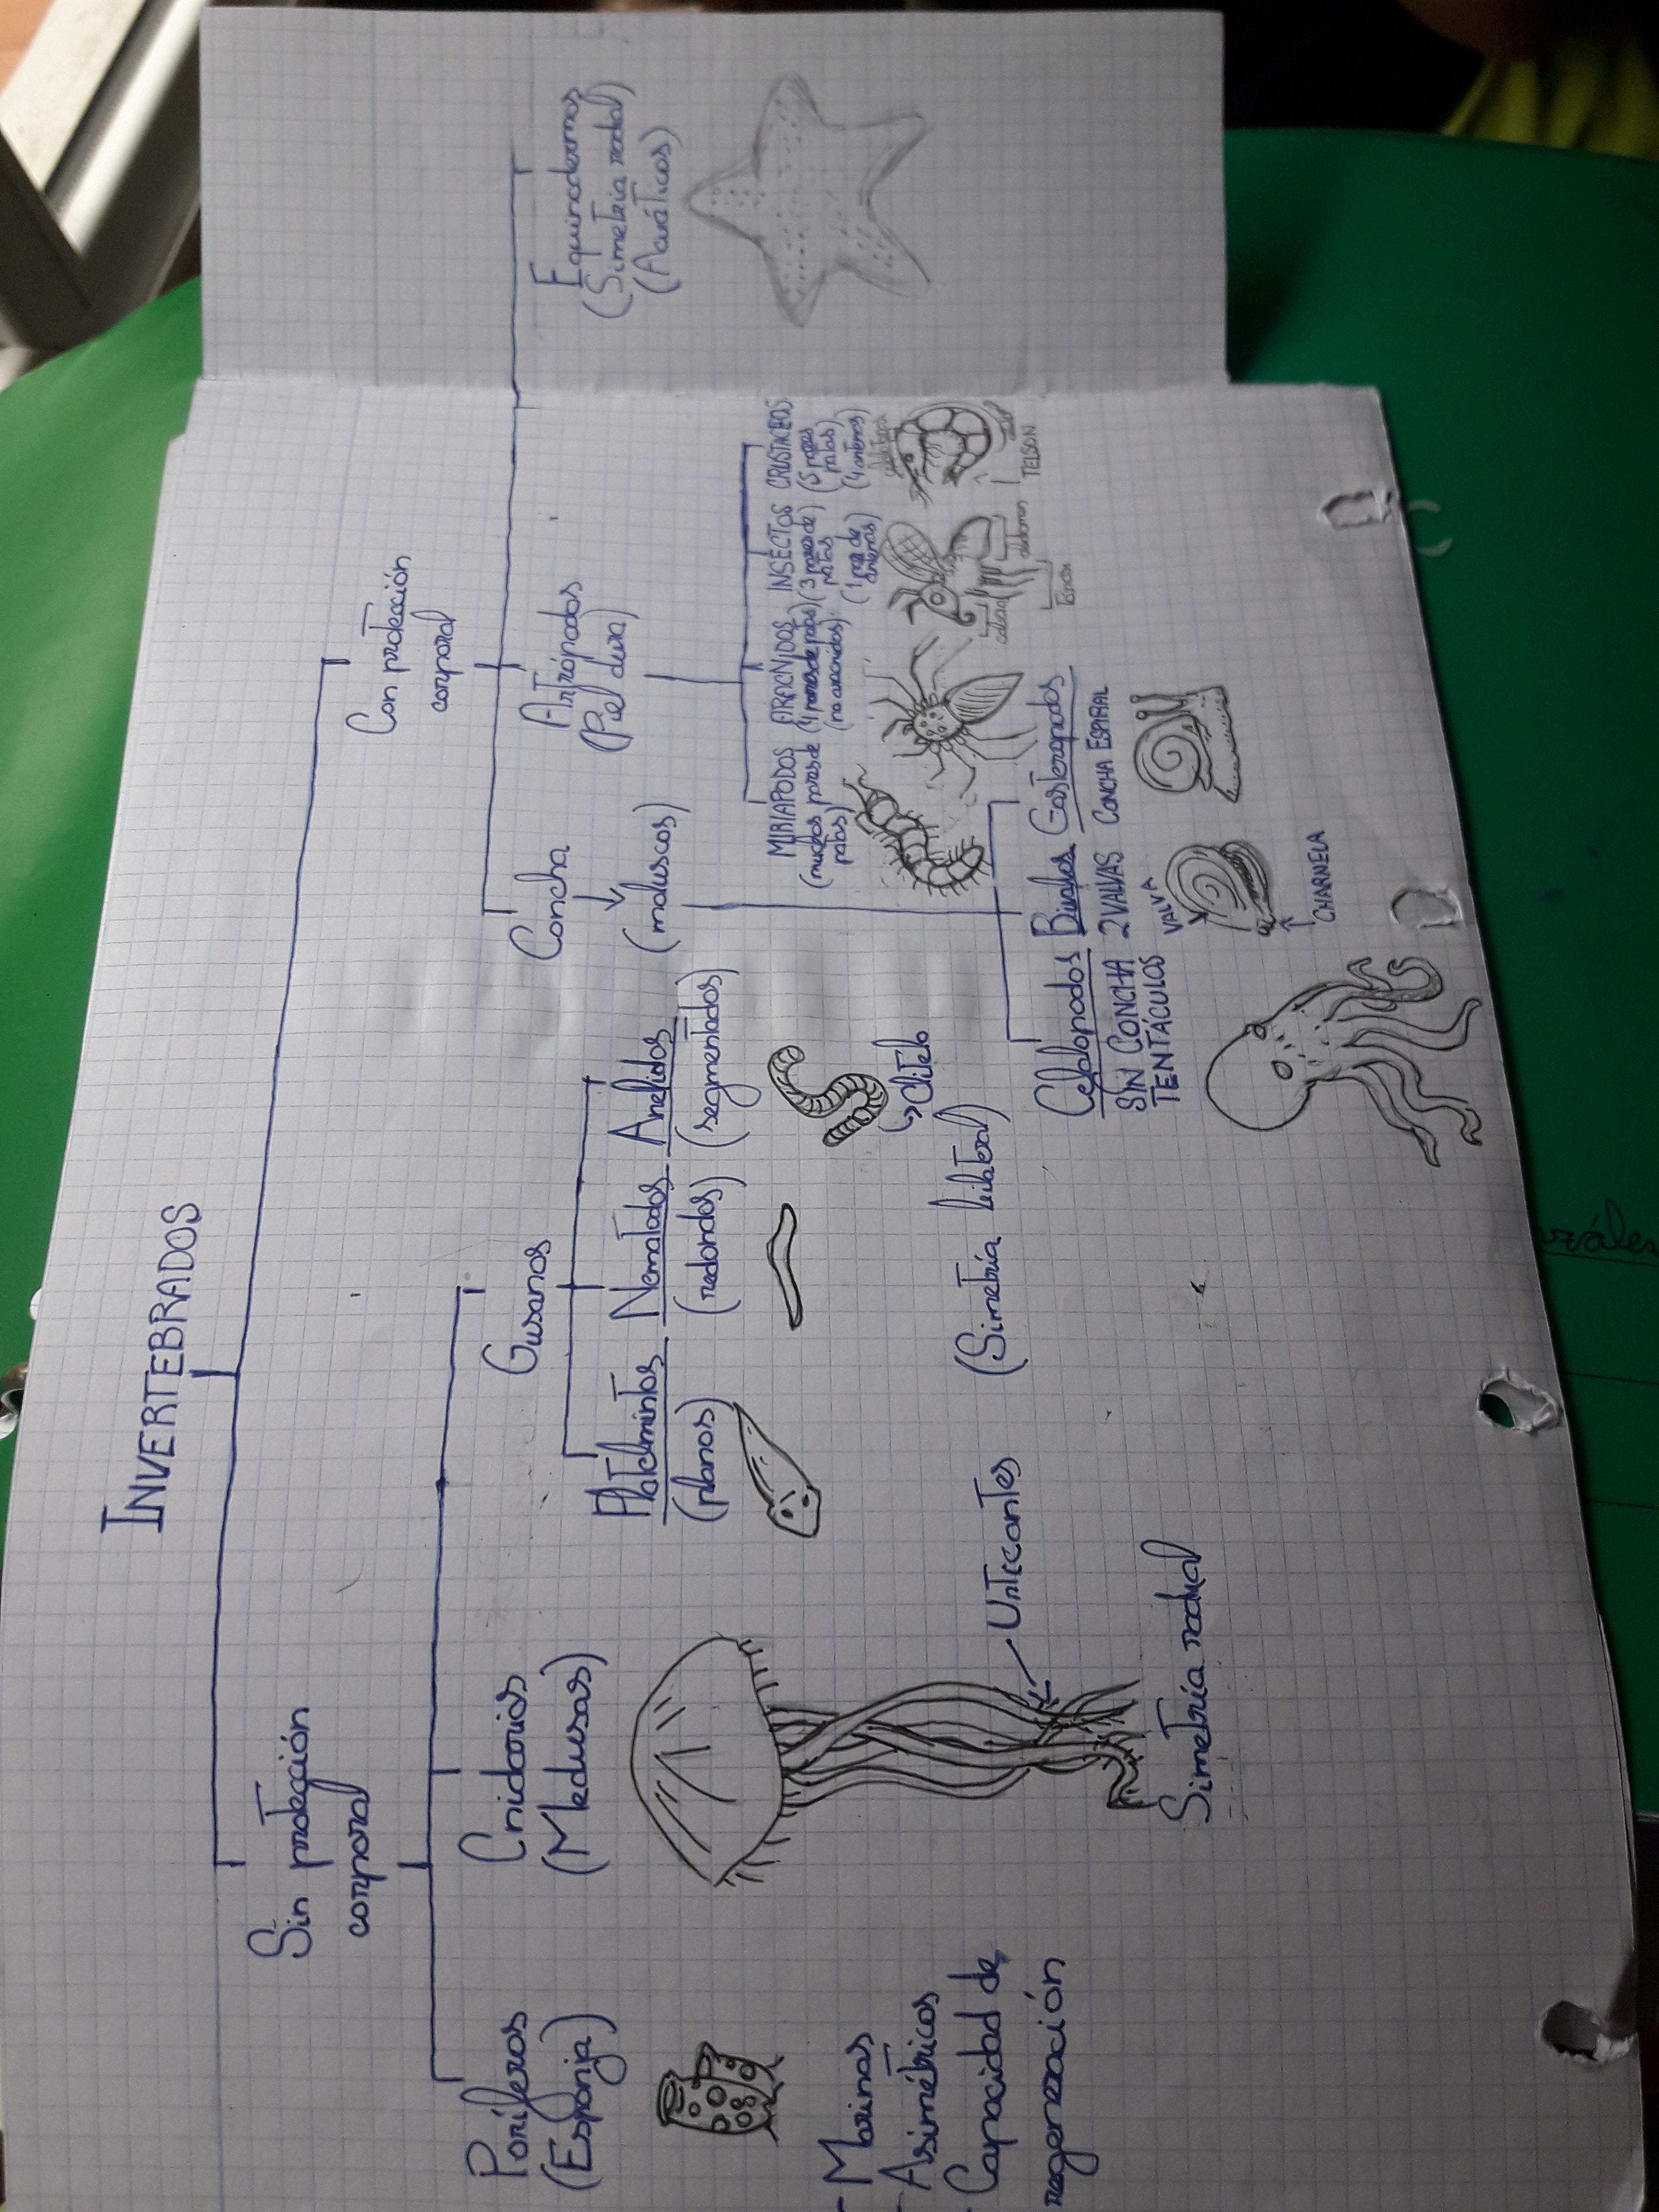 INVERTEBRADOS
Sin protección
corporal
Con protección
corporal
Poríferos
(Esponja)
- Marinos
- Asimétricos
- Capacidad de
regeneración
Cnidarios
(Medusas)
Urticantes
Simetría radial
Gusanos
Platelmintos
(planos)
Nematodos
(redondos)
Anelidos
(segmentados)
Clitelo
(Simetría bilateral)
Concha
(moluscos)
Cefalopodos
SIN CONCHA
TENTÁCULOS
Bivalvos
2 VALVAS
VALVA
CHARNELA
Gasteropodos
CONCHA ESPIRAL
Artrópodos
(Piel dura)
MIRIAPODOS
(muchos pares de
patas)
ARACNIDOS
(4 pares de patas)
INSECTOS
(3 pares de)
patas
(1 par de
antenas)
cabeza
abdomen
CRUSTACEOS
(5 pares
patas)
(4 antenas)
TELSON
Equinodermos
(Simetria radial)
(Acuáticos)